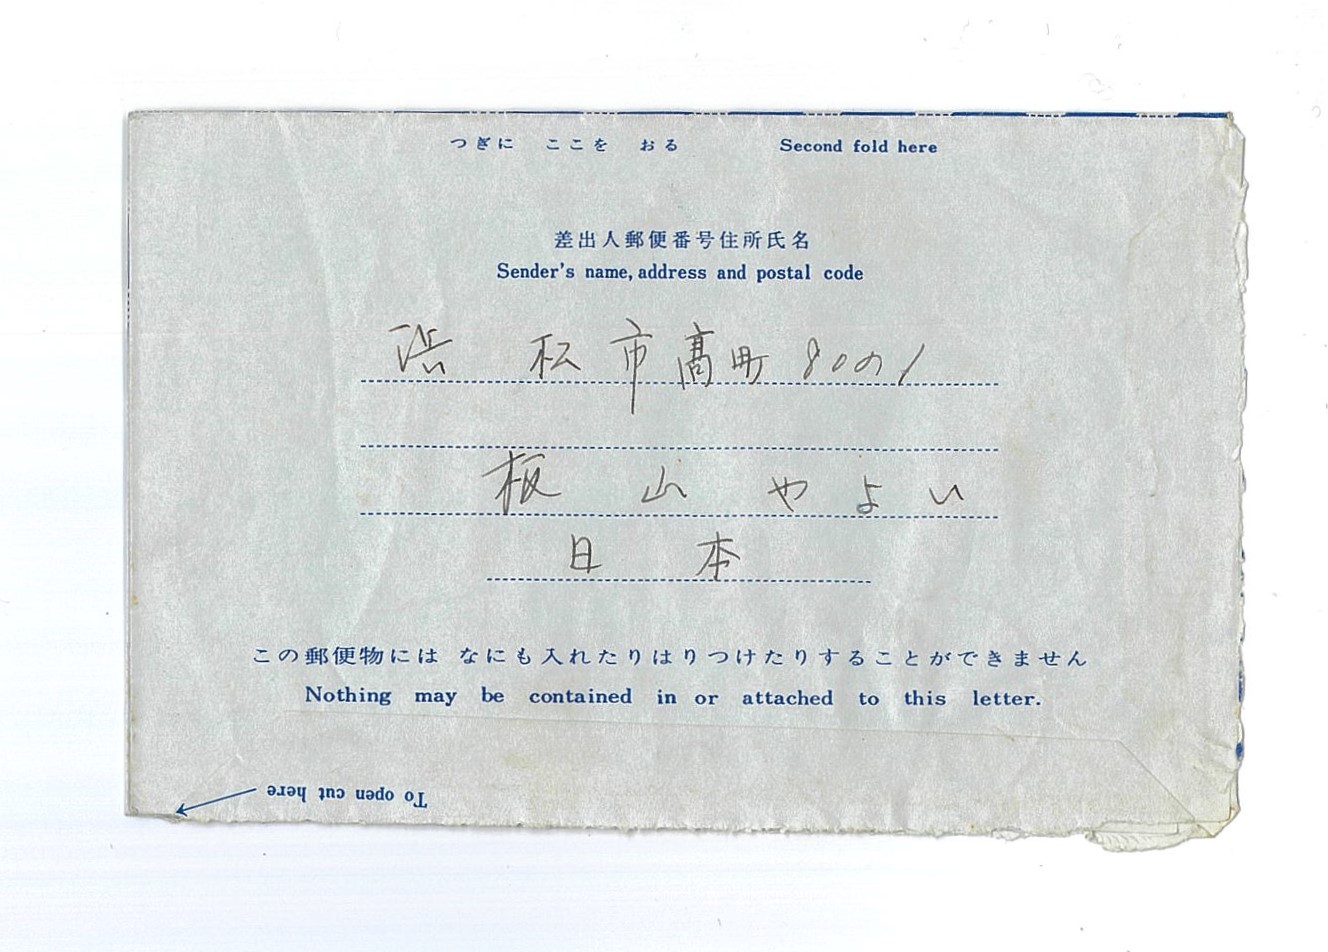 つぎに ここを おる Second fold here
差出人郵便番号住所氏名
Sender's name, address and postal code
浜松市高町80の1
板山やよい
日本
この郵便物には なにも入れたりはりつけたりすることができません
Nothing may be contained in or attached to this letter.
To open cut here